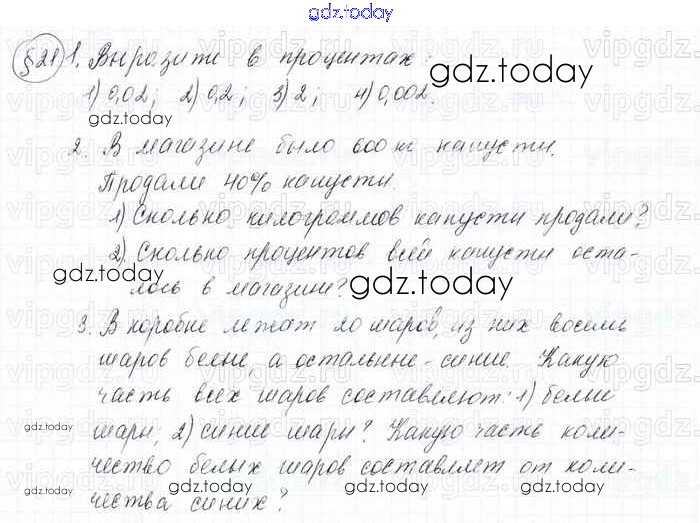 gdz.today
§21 1. Выразите в процентах:
gdz.today
1) 0,02; 2) 0,2; 3) 2; 4) 0,002.
gdz.today
2. В магазине было 600 кг капусты.
Продали 40% капусты.
1) Сколько килограммов капусты продали?
2) Сколько процентов всей капусты оста-
gdz.today
лось в магазине?
gdz.today
3. В коробке лежат 20 шаров, из них восемь
шаров белые, а остальные - синие. Какую
часть всех шаров составляют: 1) белые
gdz.today
шары; 2) синие шары? Какую часть коли-
чество белых шаров составляет от коли-
gdz.today gdz.today gdz.today
чества синих?